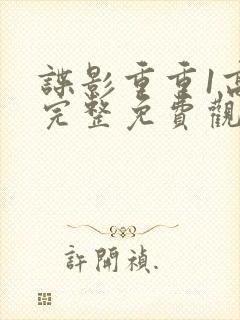 諜影重重1高
完整免費觀
許開禎.